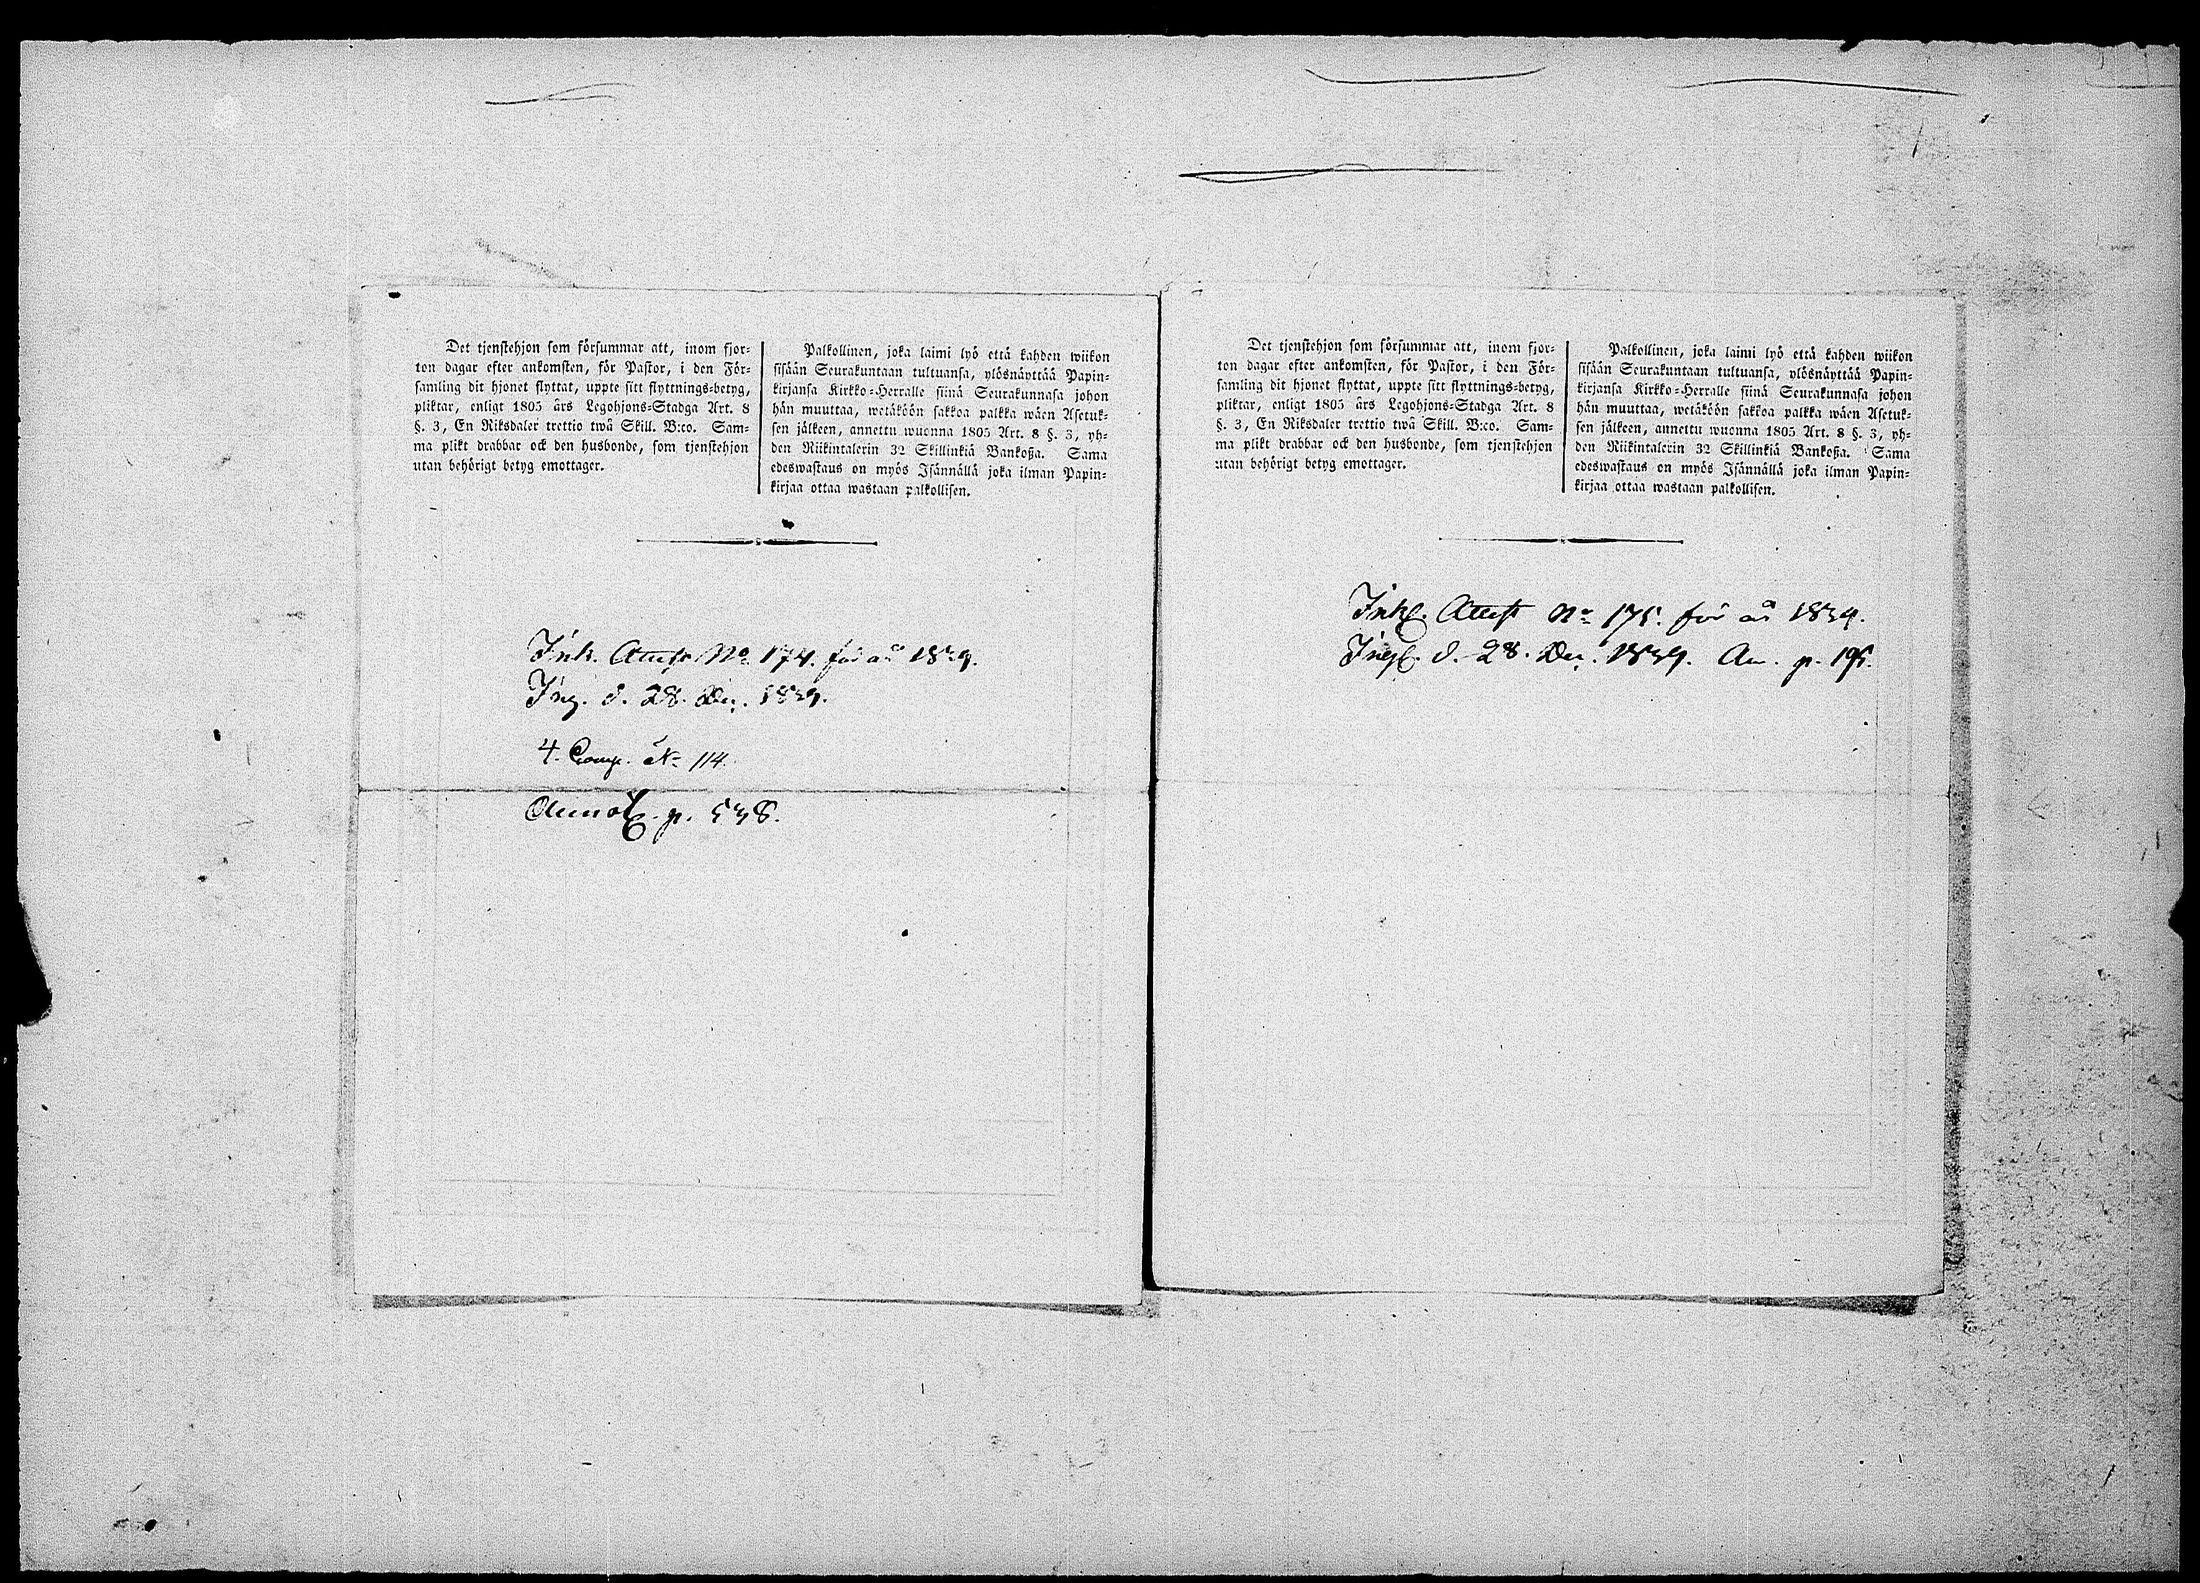 Det tjenstehjon som försummar att, inom fjor-
ton dagar efter ankomsten, för Pastor, i den För-
samling dit hjonet flyttat, uppte sitt flyttnings-betyg,
pliktar, enligt 1805 års Legohjons-Stadga Art. 8
§. 3, En Riksdaler trettio twå Skill. B:co. Sam-
ma plikt drabbar ock den husbonde, som tjenstehjon
utan behörigt betyg emottager.
Palkollinen, joka laimi lyö että kahden wiikon
sisään Seurakuntaan tultuansa, ylösnäyttää Papin-
kirjansa Kirkko-Herralle siinä Seurakunnasa johon
hän muuttaa, wetäköön sakkoa palkka wäen Asetuk-
sen jälkeen, annettu wuonna 1805 Art. 8 §. 3, yh-
den Riikintalerin 32 Skillinkiä Bankoßa. Sama
edeswastaus on myös Isännällä joka ilman Papin-
kirjaa ottaa wastaan palkollisen.
Ink. Attest No 174. för år 1839.
Ing. d. 28. Dec. 1839.
4. Comp. N 114.
Annot. p. 538.
Det tjenstehjon som försummar att, inom fjor-
ton dagar efter ankomsten, för Pastor, i den För-
samling dit hjonet flyttat, uppte sitt flyttnings-betyg,
pliktar, enligt 1805 års Legohjons-Stadga Art. 8
§. 3, En Riksdaler trettio twå Skill. B:co. Sam-
ma plikt drabbar ock den husbonde, som tjenstehjon
utan behörigt betyg emottager.
Palkollinen, joka laimi lyö että kahden wiikon
sisään Seurakuntaan tultuansa, ylösnäyttää Papin-
kirjansa Kirkko-Herralle siinä Seurakunnasa johon
hän muuttaa, wetäköön sakkoa palkka wäen Asetuk-
sen jälkeen, annettu wuonna 1805 Art. 8 §. 3, yh-
den Riikintalerin 32 Skillinkiä Bankoßa. Sama
edeswastaus on myös Isännällä joka ilman Papin-
kirjaa ottaa wastaan palkollisen.
Ink. Attest No 175. för år 1839.
Ing. d. 28. Dec. 1839. An. p. 195.